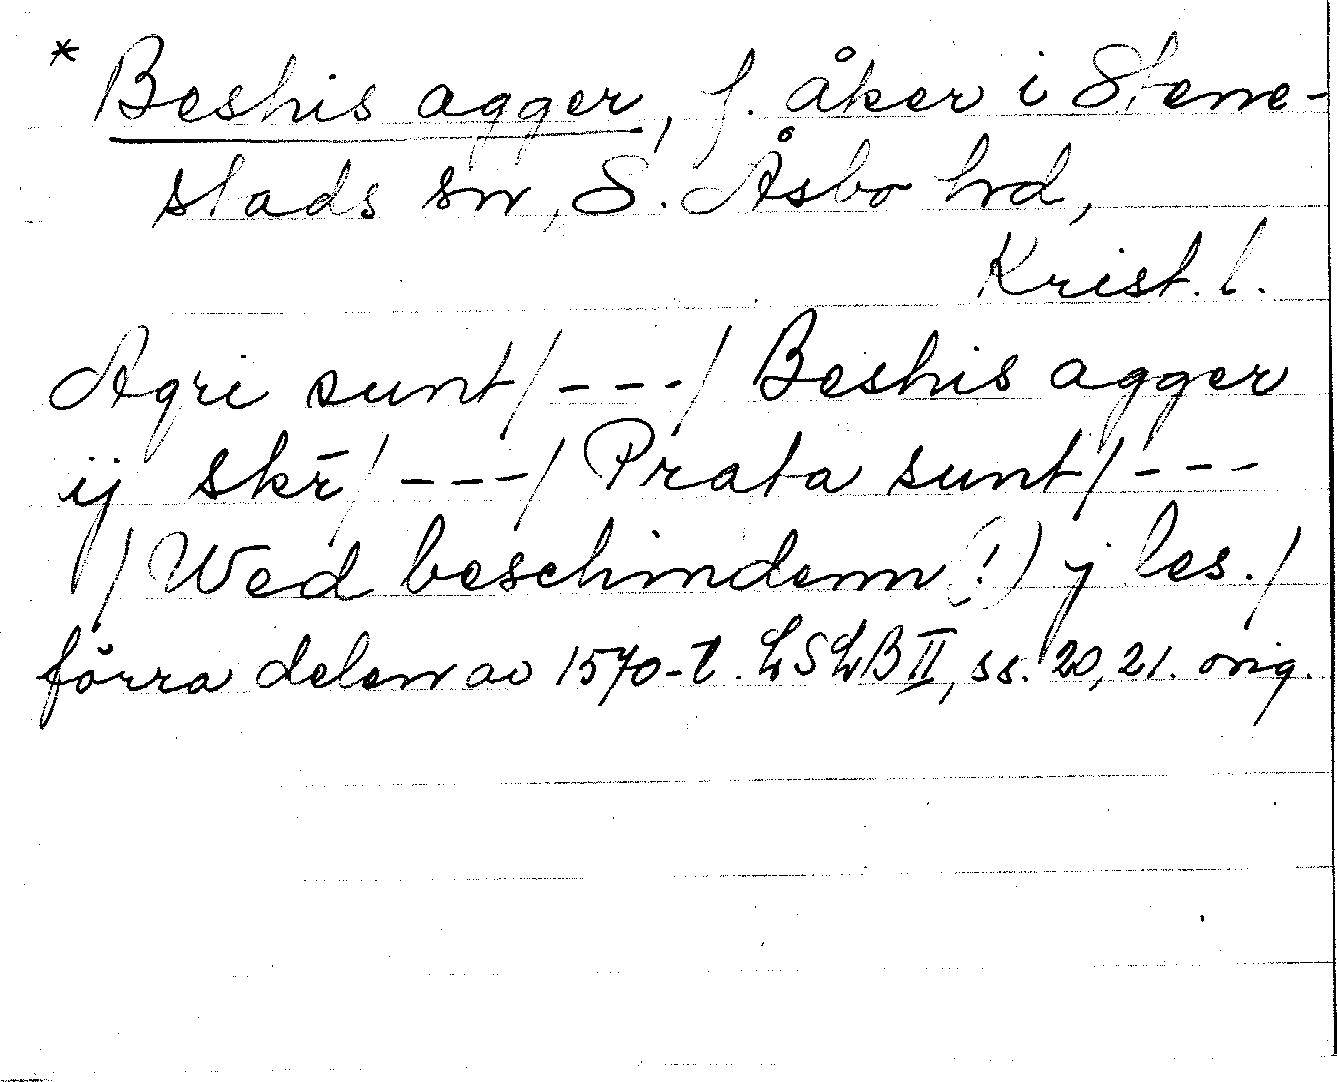 * Beshis agger, f. åker i Stene-
stads sn, S. Åsbo hrd,
Krist. l.
Agri sunt/---/ Beshis agger
ij skr̄/---/ Prata sunt/---
/Wed beschindenn (!) j les./
förra delen av 1570-t. LSLB II, ss. 20, 21. orig.